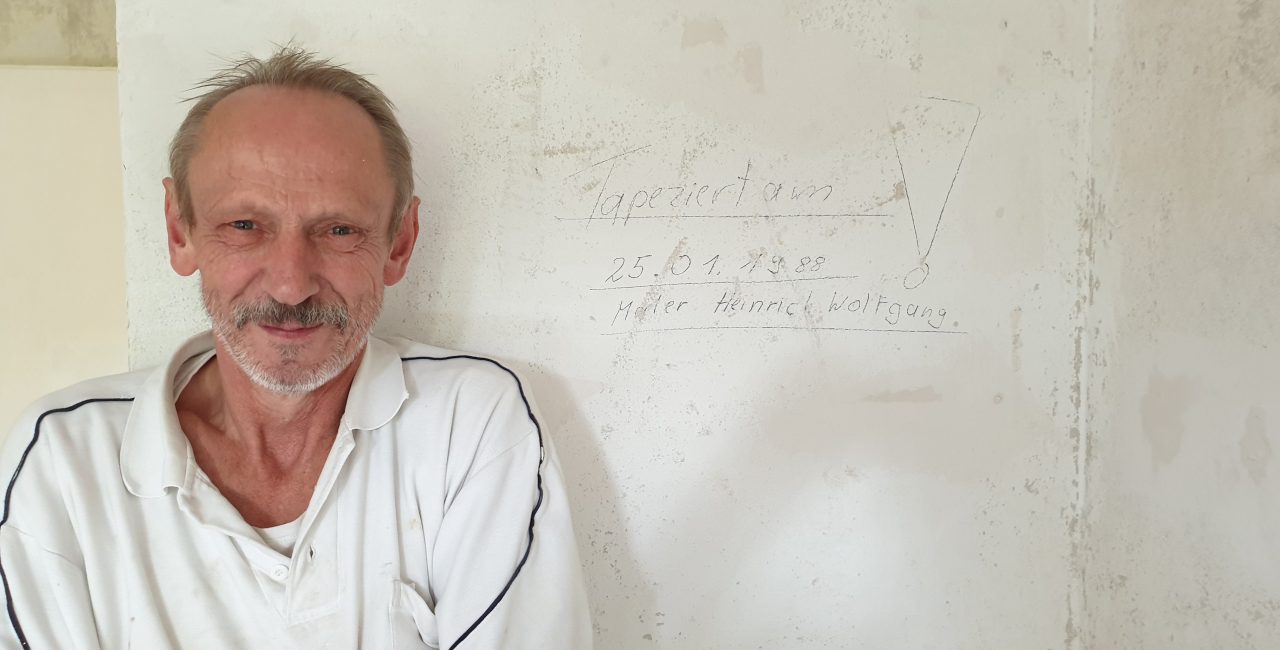 Tapeziert am !
25.01.1988
Maler Heinrich Wolfgang.